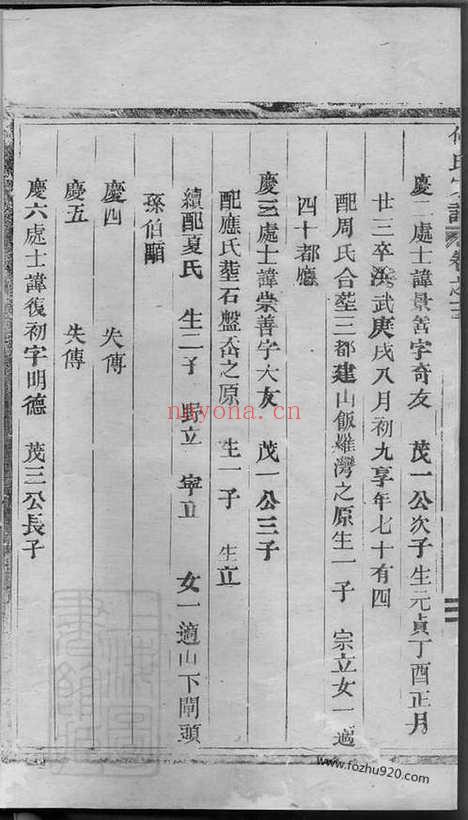 氏宗譜 卷之三
慶二處士諱景善字奇友 茂一公次子生元貞丁酉正月
廿三卒洪武庚戌八月初九享年七十有四
配周氏合塟三都建山飯羅灣之原生一子 宗立女一適
四十都應
慶三處士諱崇善字大友 茂一公三子
配應氏塟石盤嵞之原 生一子 生立
續配夏氏 生二子 野立 寧立 女一適山下閘頭
孫伯顒
慶四 失傳
慶五 失傳
慶六處士諱復初字明德 茂三公長子
nayona.cn
www.fozhu920.com